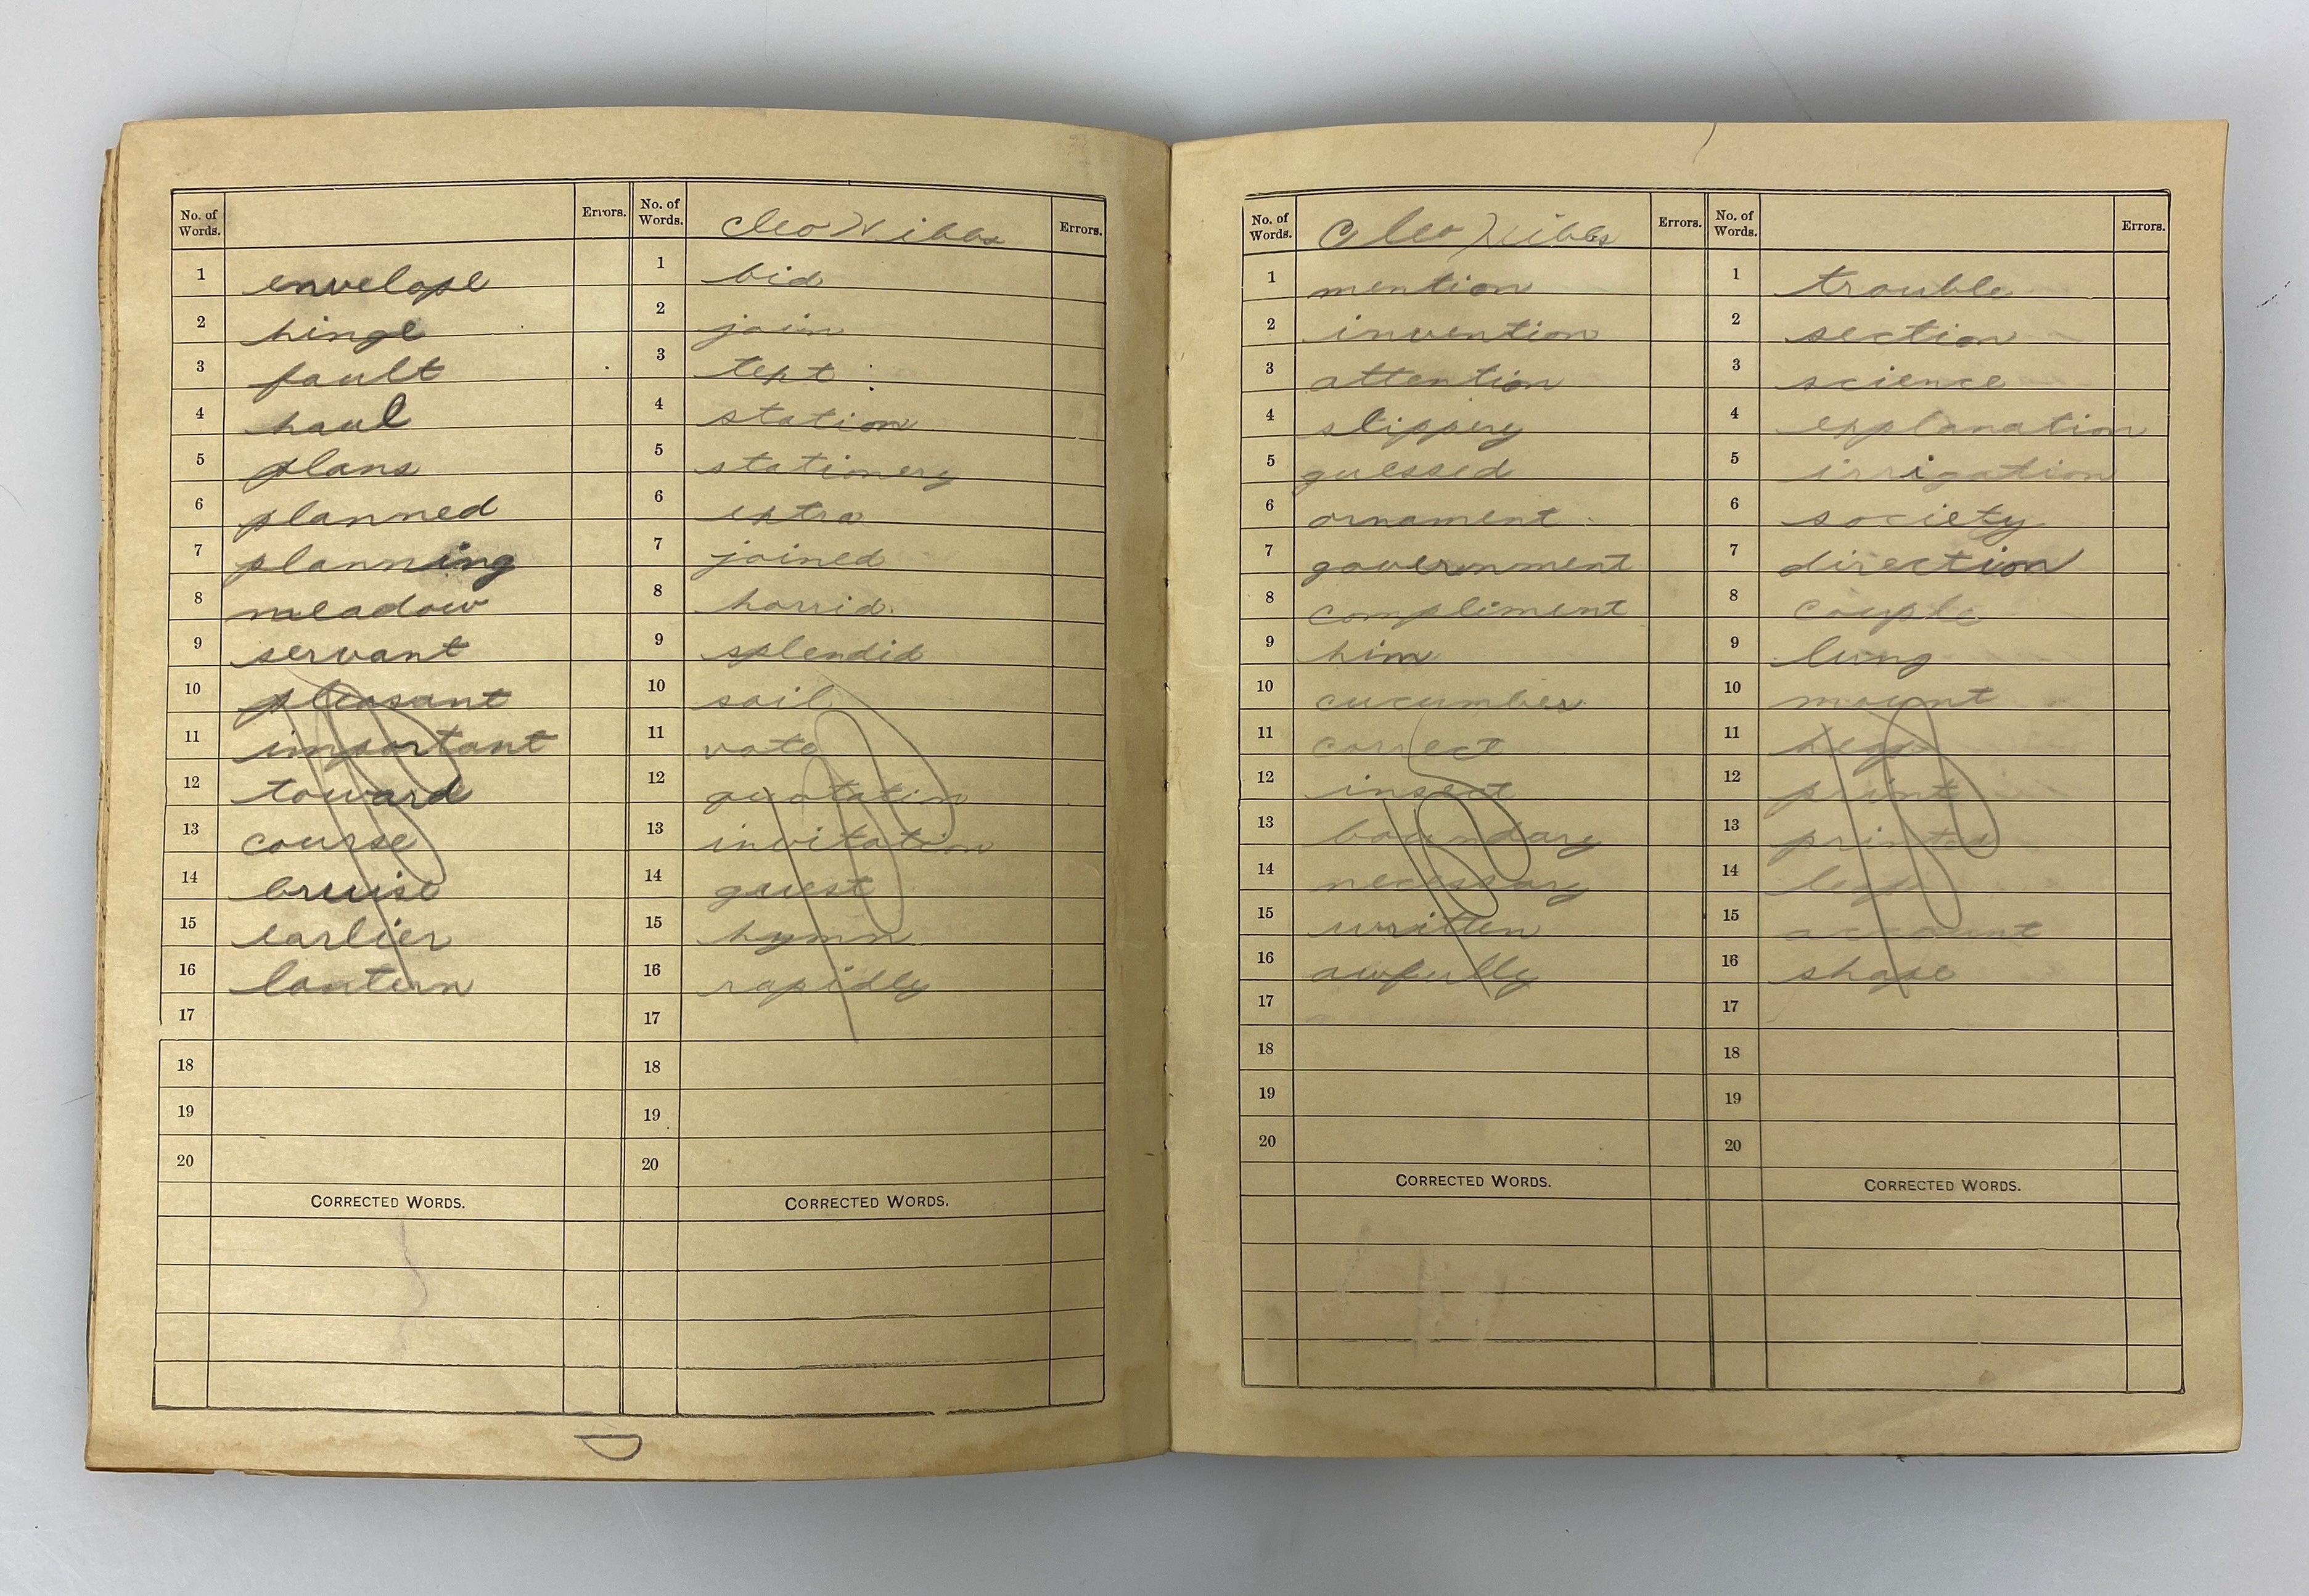 No. of Words. Errors.
1 envelope
2 hinge
3 fault
4 haul
5 plans
6 planned
7 planning
8 meadow
9 servant
10 pleasant
11 important
12 toward
13 course
14 bruise
15 earlier
16 lantern
17
18
19
20
CORRECTED WORDS.
No. of Words. Cleo Nibbs Errors.
1 bid
2 join
3 text
4 station
5 stationery
6 extra
7 joined
8 horrid
9 splendid
10 soil
11 vote
12 quotation
13 invitation
14 guest
15 hymn
16 rapidly
17
18
19
20
CORRECTED WORDS.
No. of Words. Cleo Nibbs Errors.
1 mention
2 invention
3 attention
4 slippery
5 guessed
6 ornament
7 government
8 compliment
9 him
10 cucumber
11 correct
12 insect
13 boundary
14 necessary
15 written
16 awfully
17
18
19
20
CORRECTED WORDS.
No. of Words. Errors.
1 trouble
2 section
3 science
4 explanation
5 irrigation
6 society
7 direction
8 couple
9 lung
10 mount
11
12 print
13 printed
14
15 account
16 shape
17
18
19
20
CORRECTED WORDS.